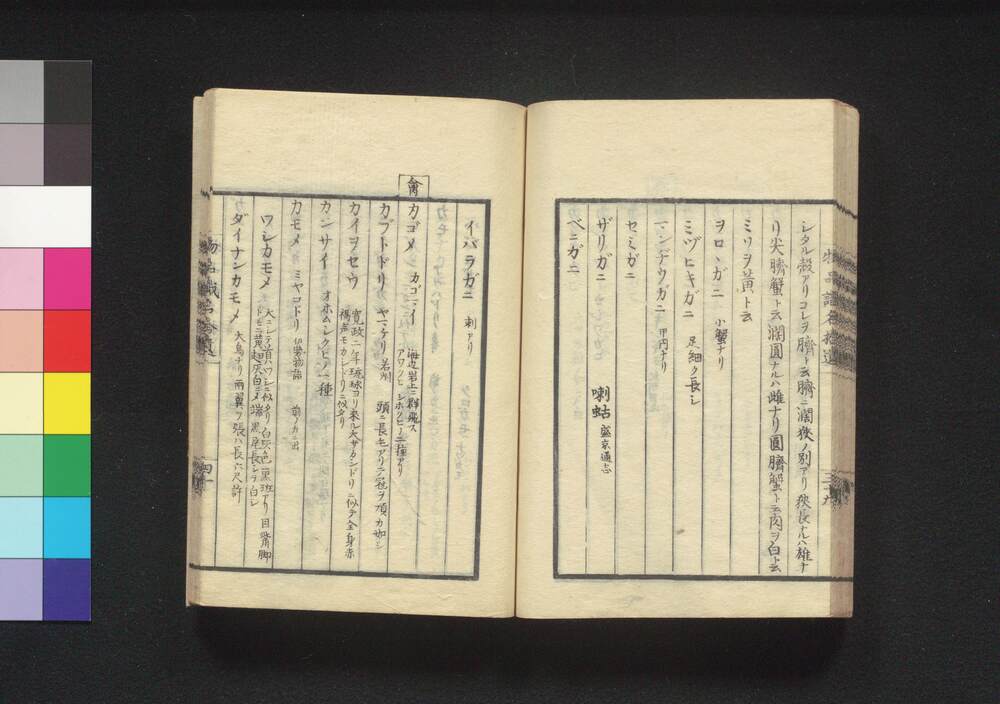 シタル殻アリコレヲ臍ト云臍ニ濶狹ノ別アリ狹長ナルハ雄ナ
リ尖臍蟹ト云濶圓ナルハ雌ナリ圓臍蟹ト云肉ヲ白ト云
ミソヲ黄ト云
ヲロヽガニ 小蟹ナリ
ミヅヒキガニ 足細ク長シ
マンヂウガニ 甲円ナリ
セミガニ
ザリガニ 喇蛄 盛京通志
ベニガニ
イバラガニ 刺アリ
禽
カゴメ カゴマイ 海辺岩上ニ群飛ス
アワノヒ シホノヒ 二種アリ
カブトドリ ヤマゲリ 若州 頭ニ長毛アリテ冠ヲ頂カ如シ
カイヲセウ 寛政二年琉球ヨリ來ル大サカシドリニ似テ全身赤
カンサイ オホムシクヒノ一種
カモメ ミヤコドリ 伊勢物語
ワシカモメ 大ニシテ首ハワシニ似タリ白灰色黒斑アリ目觜脚
ダイナンカモメ 大鳥ナリ兩翼ヲ張ハ長六尺許
四十一